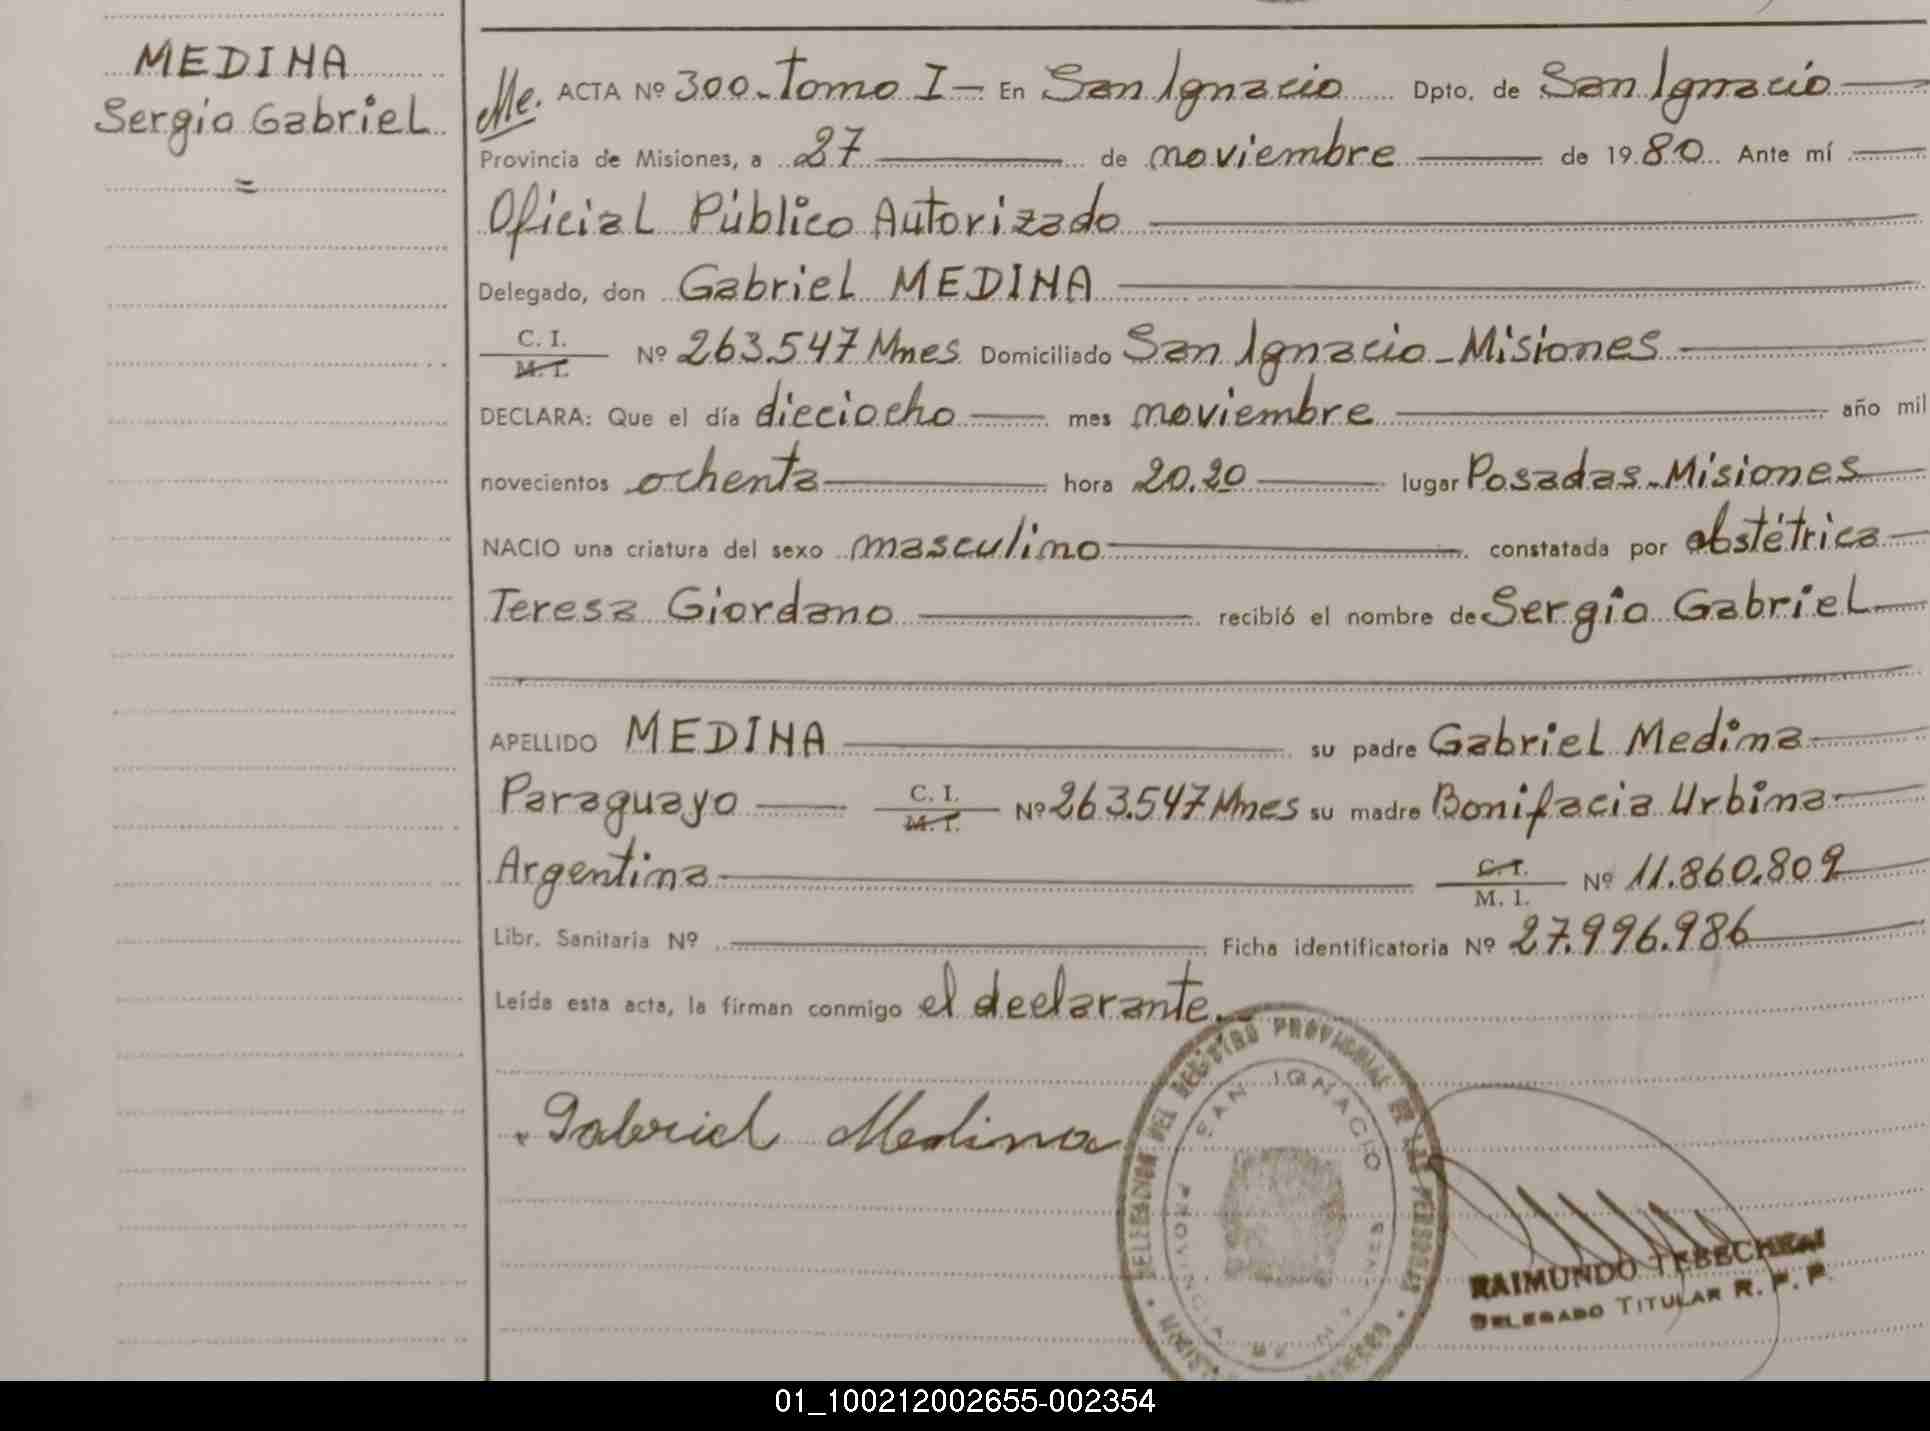 MEDINA
Sergio Gabriel
=
Me. ACTA Nº 300. tomo I — En San Ignacio Dpto. de San Ignacio
Provincia de Misiones, a 27 de noviembre de 1980. Ante mí
Oficial Público Autorizado
Delegado, don Gabriel MEDINA
C. I.
M. I. Nº 263.547 Mnes Domiciliado San Ignacio - Misiones
DECLARA: Que el día dieciocho mes noviembre año mil
novecientos ochenta hora 20.20 lugar Posadas - Misiones
NACIO una criatura del sexo masculino constatada por obstétrica
Teresa Giordano recibió el nombre de Sergio Gabriel
APELLIDO MEDINA su padre Gabriel Medina
Paraguayo C. I. M. I. Nº 263.547 Mnes su madre Bonifacia Urbina
Argentina C. I. M. I. Nº 11.860.809
Libr. Sanitaria Nº Ficha identificatoria Nº 27.996.986
Leída esta acta, la firman conmigo el declarante.
Gabriel Medina
DELEGACION DEL REGISTRO PROVINCIAL DE LAS PERSONAS
SAN IGNACIO
PROVINCIA
RAIMUNDO TEBECHERI
DELEGADO TITULAR R. P. P.
01_100212002655-002354